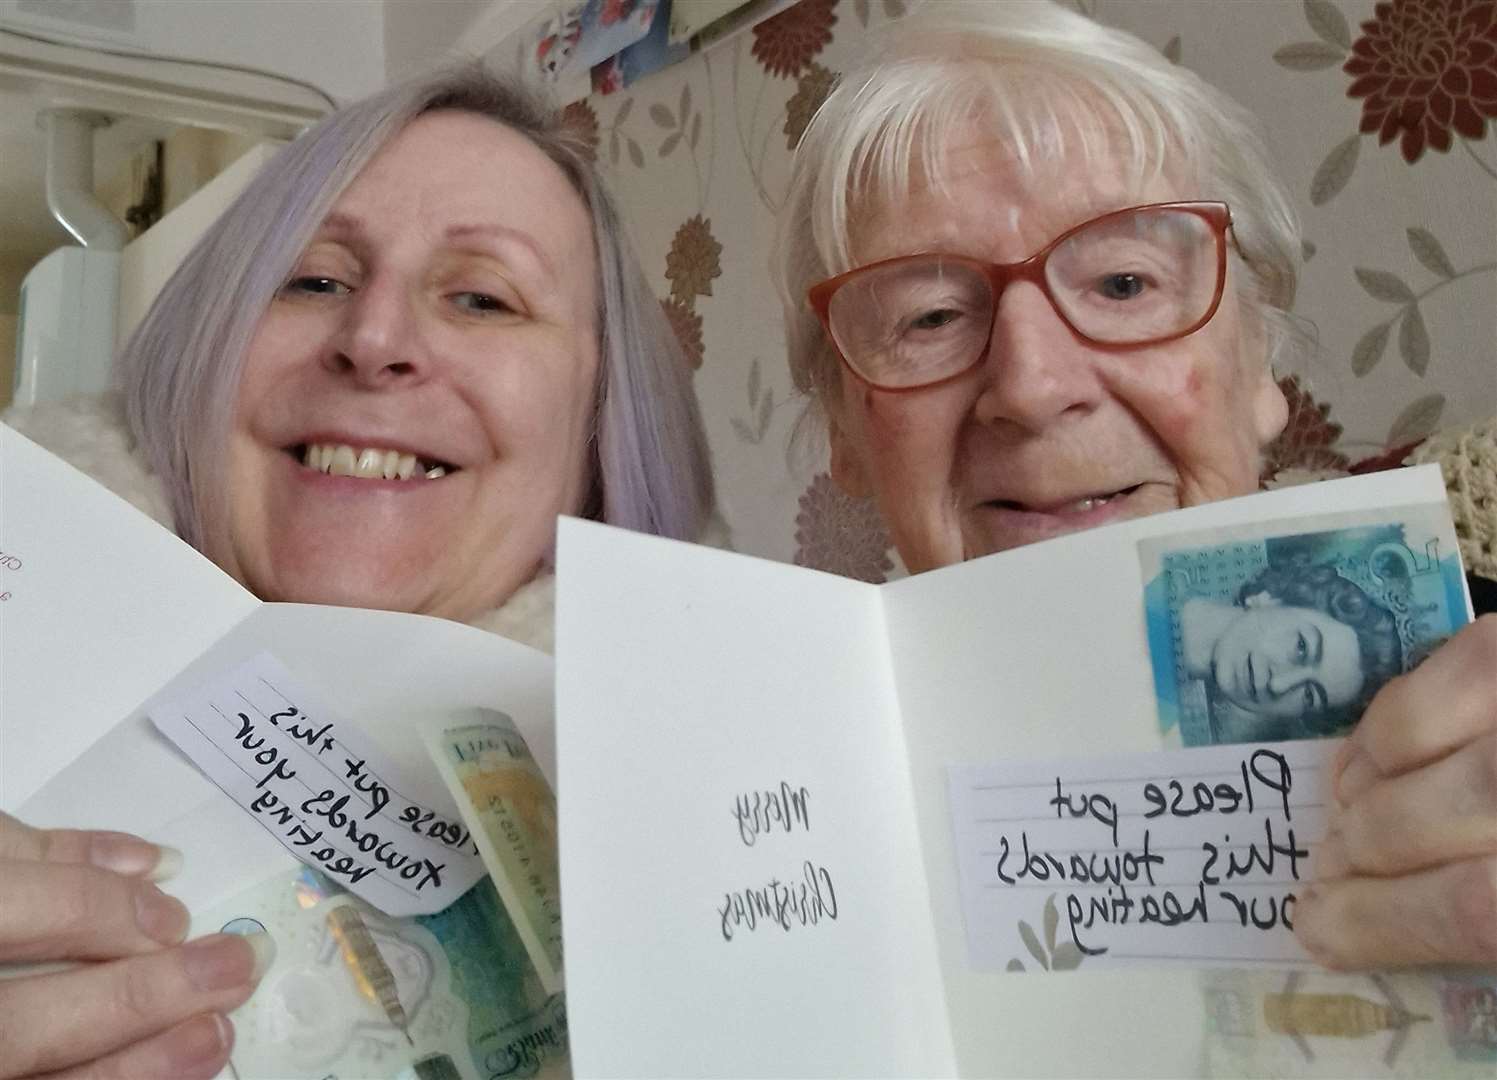 Please put this
towards your
heating
Merry
Christmas
Please put
this towards
our heating
5